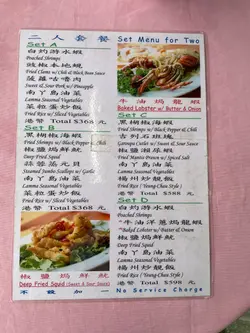 二人套餐 Set Menu for Two
Set A
白灼游水蝦
Poached Shrimps
豉椒本地蜆
Fried Clams w/ Chili & Black Bean Sauce
菠蘿咕嚕肉
Sweet & Sour Pork w/ Pineapple
南丫島油菜
Lamma Seasonal Vegetables
菜粒蛋炒飯
Fried Rice w/ Sliced Vegetables
港幣 Total $368 元
Set B
黑椒椒海蝦
Fried Shrimps w/ Black Pepper & Chili
椒鹽焗鮮魷
Deep Fried Squid
蒜蓉蒸元貝
Steamed Jumbo Scallops w/ Garlic
南丫島油菜
Lamma Seasonal Vegetables
菜粒蛋炒飯
Fried Rice w/ Sliced Vegetables
港幣 Total $368 元
椒鹽焗鮮魷
Deep Fried Squid (Sweet & Sour Sauce)
牛油焗龍蝦
Baked Lobster w/ Butter & Onion
Set C
黑椒椒海蝦
Fried Shrimps w/ Black Pepper & Chili
古列石班塊
Garoupa Cutlet w/ Sweet & Sour Sauce
椒鹽瀨尿蝦
Fried Mantis Prawn w/ Spiced Salt
南丫島油菜
Lamma Seasonal Vegetables
楊州炒靚飯
Fried Rice ( Yeung Chau Style )
港幣 Total $388 元
Set D
白灼游水蝦
Poached Shrimps
牛油洋蔥焗龍蝦
Baked Lobster w/ Butter & Onion
椒鹽焗鮮魷
Deep Fried Squid
南丫島油菜
Lamma Seasonal Vegetables
楊州炒靚飯
Fried Rice ( Yeung Chau Style )
港幣 Total $598 元
不設加一 No Service Charge